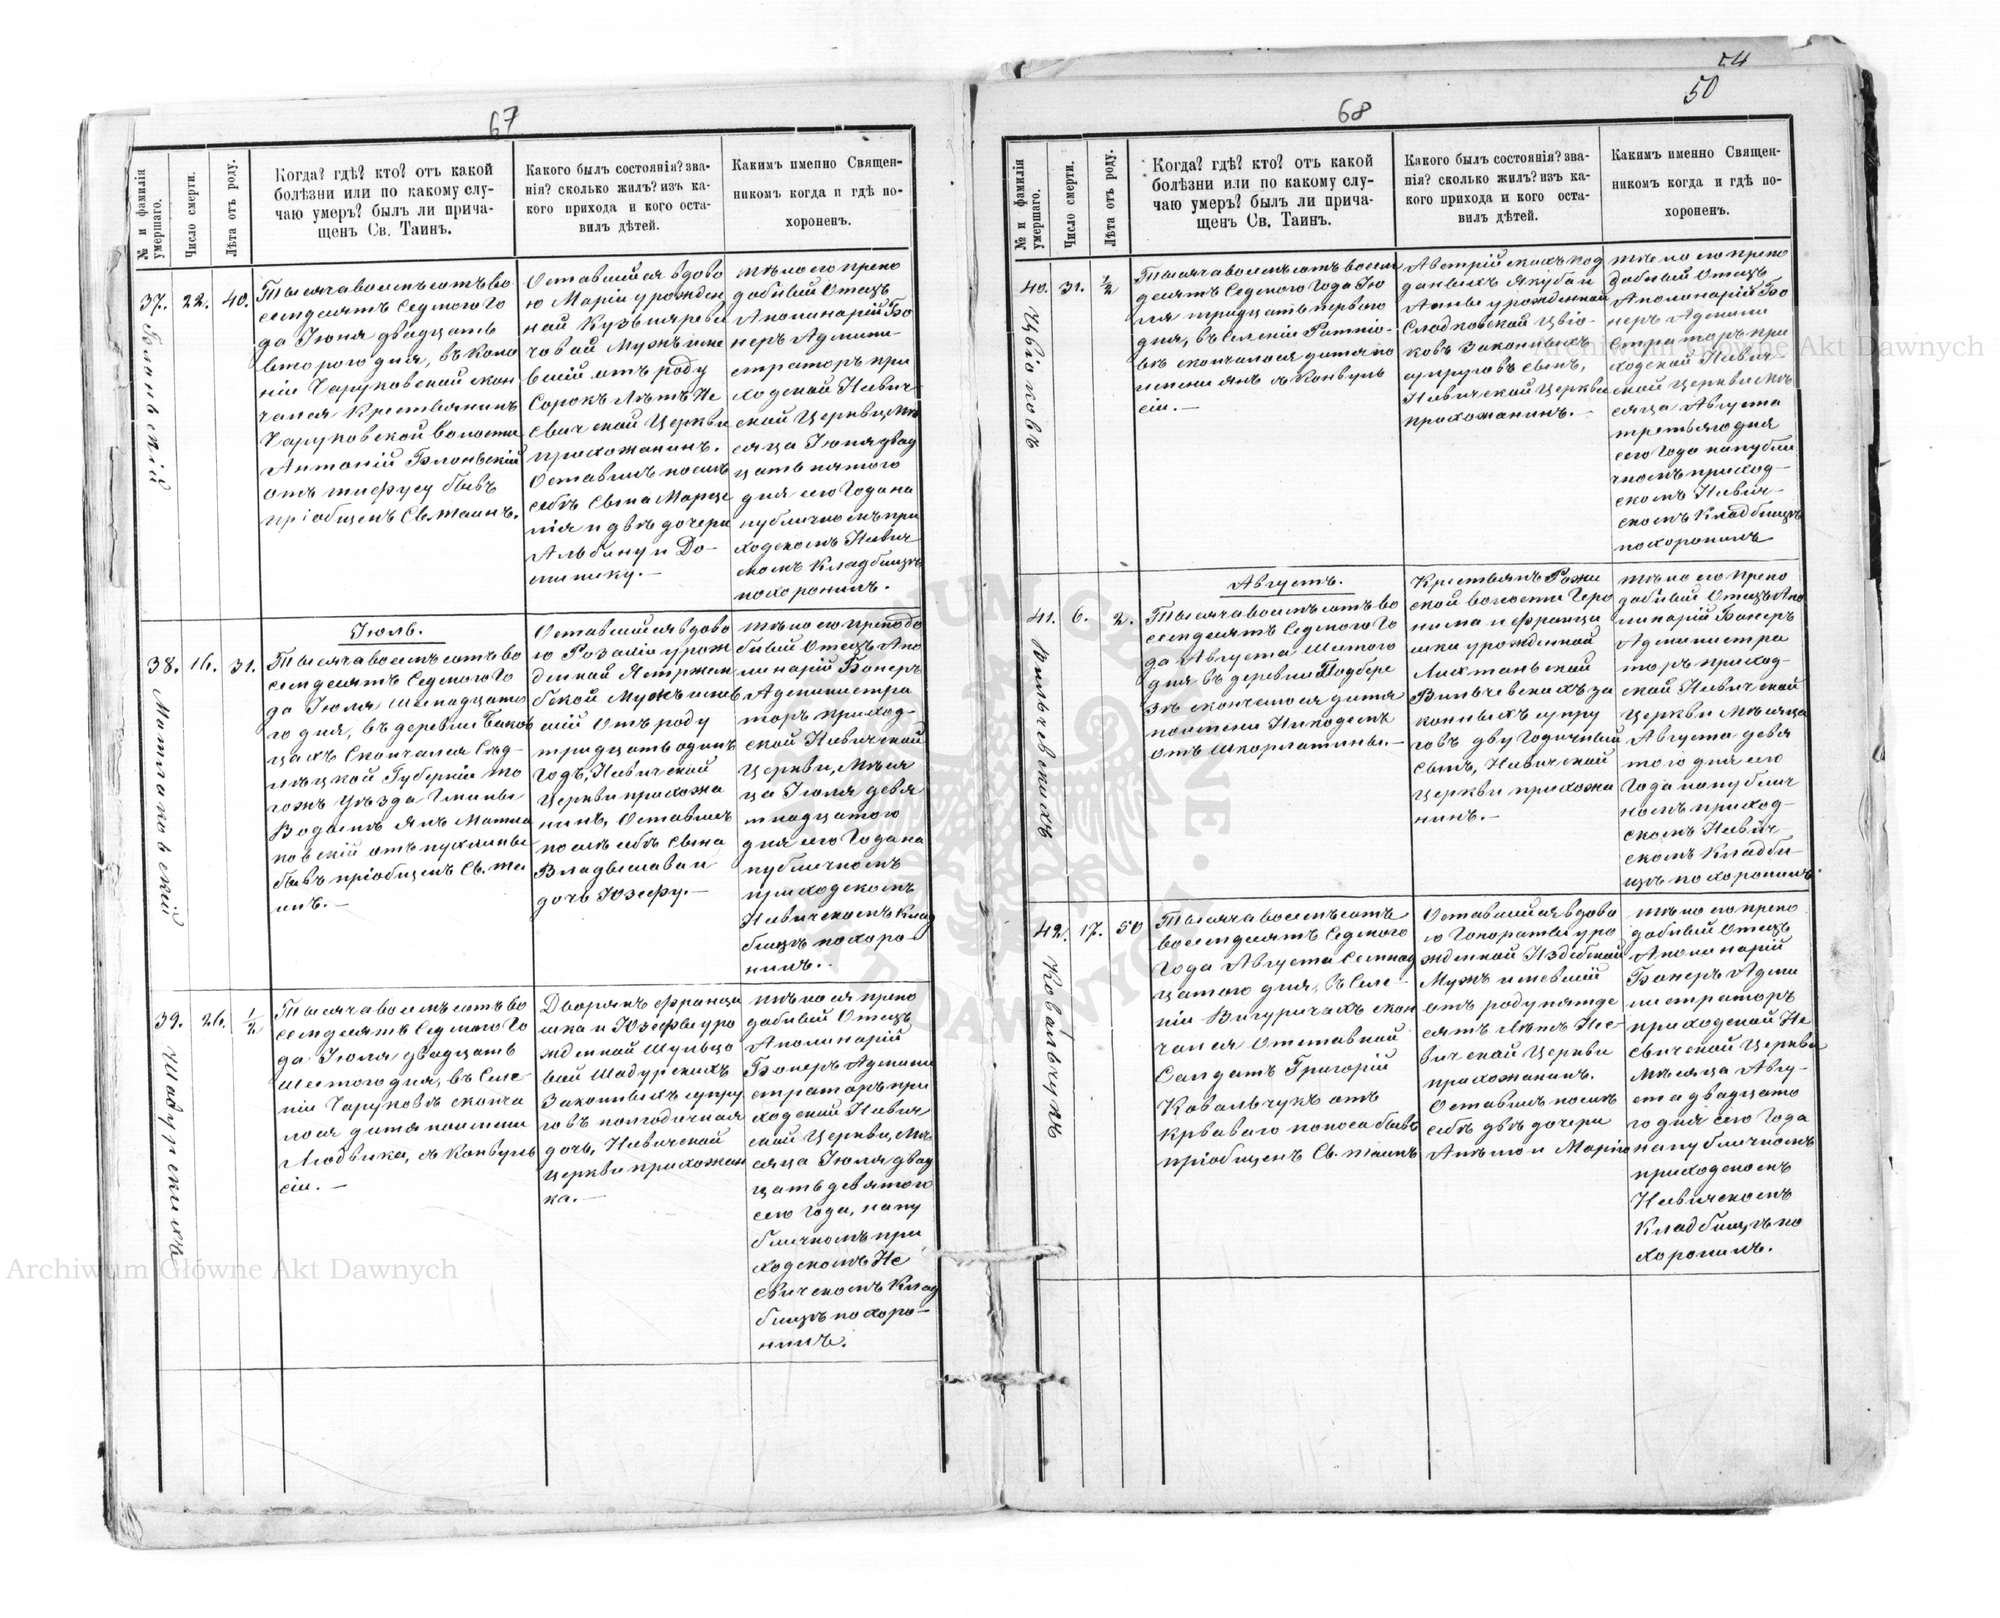 67
№ и фамилія умершаго.
Число смерти.
Лѣта отъ роду.
Когда? гдѣ? кто? отъ какой
болѣзни или по какому слу-
чаю умеръ? былъ ли прича-
щенъ Св. Таинъ.
Какого былъ состоянія? зва-
нія? сколько жилъ? изъ ка-
кого прихода и кого оста-
вилъ дѣтей.
Какимъ именно Священ-
никомъ когда и гдѣ по-
хороненъ.
37.
22.
40.
Тысяча восемьсотъ во
семдесятъ Седмого Го
да Іюня двадцать
второго дня, въ Коло
ніи Чаруковской скон
чался Крестьянинъ
Чаруковской волости
Антоній Блоньскій
отъ тифусу бывъ
пріобщенъ Св. таинъ.
Оставшійся вдово
ю Маріи урожден
ной Кузьняреви
човой Мужъ име
вшій отъ роду
Сорокъ Лѣтъ Не
свичской Церкви
прихожанинъ.
Оставилъ послѣ
себѣ Сына Марце
лія и двѣ дочери
Альбину и До-
минику. —
тѣло его препо
добный Отецъ
Аполинарій Бо
неръ Админи-
страторъ при
ходской Несвич-
ской Церкви, Мѣ
сяца Іюня двад
цать пятого
дня сего Года на
публичномъ при
ходскомъ Несвич
скомъ Кладбищѣ
похоронилъ.
Іюль.
38.
16.
31.
Тысяча восемьсотъ во
семдесятъ Седмого Го
да Іюля Шеснадцато
го дня, въ деревни Баков
цахъ Скончался Сѣд-
лѣцкой Губерніи то
гожъ Уѣзда Гмины
Водыне Янъ Матла
ковскій отъ пухлины
бывъ пріобщенъ Св. та
инъ. —
Оставшійся вдово
ю Розаліи урож
денной Ястржем
бской Мужъ имѣв
шій Отъ роду
тридцать одинъ
Годъ, Несвичской
Церкви прихожа
нинъ, Оставилъ
послѣ себѣ Сына
Владыслава и
дочь Юзефу. —
тѣло его преподо
бный Отецъ Апо
линарій Бонеръ
Администра
торъ приход-
ской Несвичской
Церкви, Мѣся
ца Іюля девя
тнадцатого
дня сего Года на
публичномъ
приходскомъ
Несвичскомъ Клад
бищѣ похоро-
нилъ. -
39.
26.
1/2
Тысяча восемьсотъ во
семдесятъ Седмого Го
да Іюля двадцать
Шестого дня, въ Селе
ніи Чаруковѣ сконча
лося дитя по имени
Людвика, съ Конвуль
сіи. —
Дворянъ Франци
шка и Юзефы уро
жденной Шульцо
вой Шадурскихъ
Законныхъ супру
говъ полгодичная
дочь, Несвичской
Церкви прихожан
ка. —
тѣло ея препо
добный Отецъ
Аполинарій
Бонеръ Админи
страторъ при
ходской Несвич
ской Церкви, Мѣ
сяца Іюля двад
цать девятого
сего Года, на пу
бличномъ при
ходскомъ Не
свичскомъ Клад
бищѣ похоро-
нилъ.
50
68
№ и фамилія умершаго.
Число смерти.
Лѣта отъ роду.
Когда? гдѣ? кто? отъ какой
болѣзни или по какому слу-
чаю умеръ? былъ ли прича-
щенъ Св. Таинъ.
Какого былъ состоянія? зва-
нія? сколько жилъ? изъ ка-
кого прихода и кого оста-
вилъ дѣтей.
Какимъ именно Священ-
никомъ когда и гдѣ по-
хороненъ.
40.
31.
1/2
Тысяча восемьсотъ восем
десятъ Седмого Года Ію
ля тридцать первого
дня, въ Селеніи Ратнё-
вѣ скончалося дитя по
имени янъ съ Конвуль
сіи. —
Австрійскихъ под
данныхъ Якуба и
Анны урожденной
Сладковской Цвіо-
ковъ Законныхъ
супруговъ Сынъ,
Несвичской Церкви
прихожанинъ. -
тѣло его препо
добный Отецъ
Аполинарій Бо
неръ Админи
страторъ при
ходской Несвич-
ской Церкви Мѣ
сяца Августа
третьяго дня
сего Года на публи
чномъ приход-
скомъ Несвич-
скомъ Кладбищѣ
похоронилъ
Августъ.
41.
6.
2.
Тысяча восемьсотъ во
семдесятъ Седмого Го
да Августа Шестого
дня въ деревни Подбере
зѣ скончалося дитя
по имени Никодемъ
отъ Шкорлятины. —
Крестьянъ Рожи
ской волости Геро
нима и Франци
шки урожденной
Лихтаньской
Вильчевскихъ за
конныхъ супру
говъ двугодичный
Сынъ, Несвичской
Церкви прихожа
нинъ. —
тѣло его препо
добный Отецъ Апо
линарій Бонеръ
Администра
торъ приход-
ской Несвичской
Церкви Мѣсяца
Августа девя
того дня сего
Года на публич
номъ приход-
скомъ Несвич
скомъ Кладби-
щѣ похоронилъ
42.
17.
50
Тысяча восемьсотъ
восемдесятъ Седмого
Года Августа Семнад
цатого дня, въ Селе-
ніи Вигуричахъ скон
чался Отставной
Салдатъ Григорій
Ковальчукъ отъ
Крваваго поноса бывъ
пріобщенъ Св. таинъ
Оставшійся вдово
ю Гонораты уро
жденной Издебской
Мужъ имевшій
отъ роду пятде
сятъ лѣтъ Нес-
вичской Церкви
прихожанинъ.
Оставилъ послѣ
себѣ двѣ дочери
Анелю и Марію
тѣло его препо
добный Отецъ
Аполинарій
Бонеръ Адми
нистраторъ
приходской Не
свичской Церкви
Мѣсяца Авгу-
ста двадцато
го дня сего Года
на публичномъ
приходскомъ
Несвичскомъ
Кладбищѣ по
хоронилъ.
Блоньскій
Матлаковскій
Шадурскихъ
Цвіоковъ
Вильчевскихъ
Ковальчукъ
Archiwum Główne Akt Dawnych
Archiwum Główne Akt Dawnych